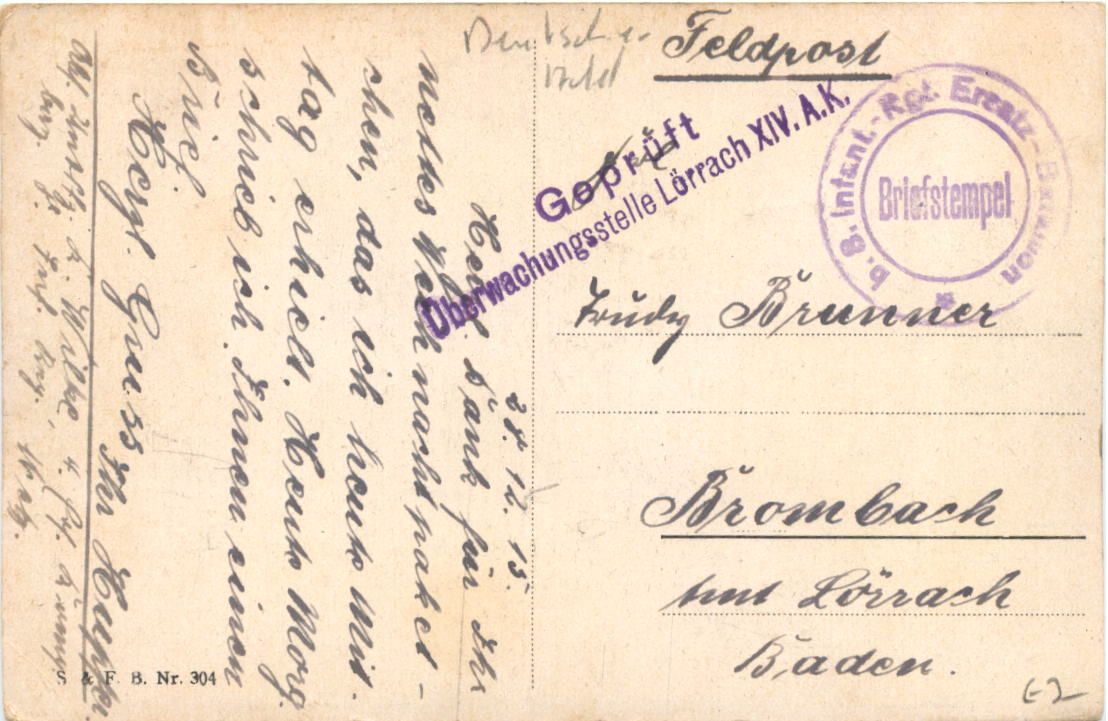 Feldpost
Geprüft
Überwachungsstelle Lörrach XIV. A.K.
b. 8. Infant.-Rgt. Ersatz-Bataillon
Briefstempel
Trudy Brunner
Brombach
Amt Lörrach
Baden.
28.12.15.
Herzl. Dank für Ihr
nettes Weihnachtspaket-
chen, das ich heute Mit.
tag erhielt. Heute Morg.
schrieb ich Ihnen einen
Brief.
Herzl. Gruss Ihr
S & F. B. Nr. 304